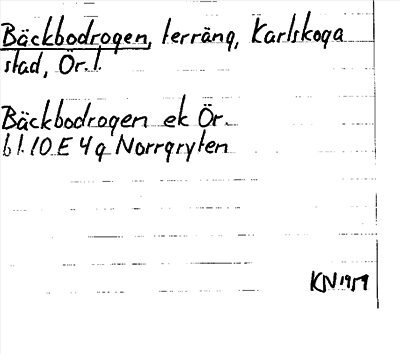 Bäckbodrogen, terräng, Karlskoga
stad, Ör. l.
Bäckbodrogen ek Ör.
bl. 10 E 4 g Norrgryten
KN 1959